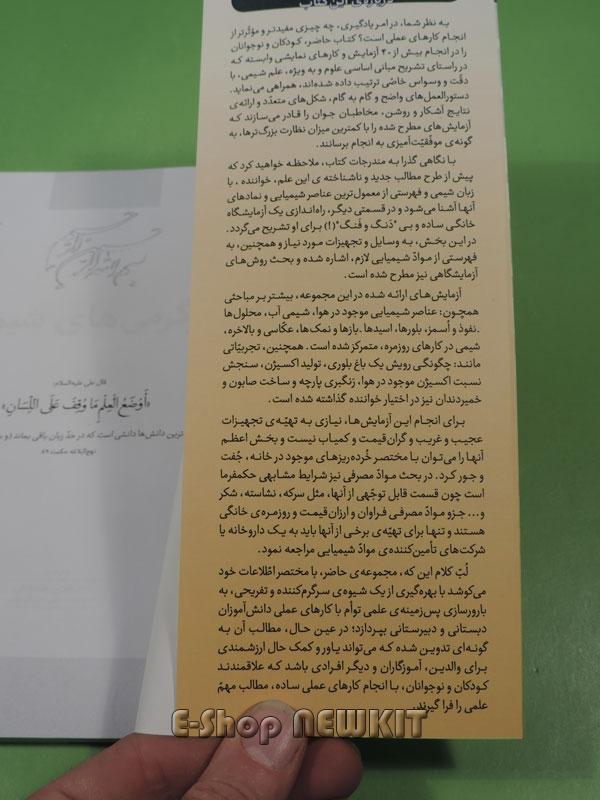 درباره‌ی این کتاب
به نظر شما، در امر یادگیری، چه چیزی مفیدتر و مؤثرتر از
انجام کارهای عملی است؟ کتاب حاضر، کودکان و نوجوانان
را در انجام بیش از ۴۰ آزمایش و کارهای نمایشی وابسته که
در راستای تشریح مبانی اساسی علوم و به ویژه، علم شیمی، با
دقّت و وسواس خاصّی ترتیب داده شده‌اند، همراهی می‌نماید.
دستورالعمل‌های واضح و گام به گام، شکل‌های متعدّد و ارائه‌ی
نتایج آشکار و روشن، مخاطبان جوان را قادر می‌سازند که
آزمایش‌های مطرح شده را با کمترین میزان نظارت بزرگ‌ترها، به
گونه‌ی موفّقیّت‌آمیزی به انجام برسانند.
با نگاهی گذرا به مندرجات کتاب، ملاحظه خواهید کرد که
پیش از طرح مطالب جدید و ناشناخته‌ی این علم، خواننده، با
زبان شیمی و فهرستی از معمول‌ترین عناصر شیمیایی و نمادهای
آنها آشنا می‌شود و در قسمتی دیگر، راه‌اندازی یک آزمایشگاه
خانگی ساده و بی "دَنگ و فَنگ"(!) برای او تشریح می‌گردد.
در این بخش، به وسایل و تجهیزات مورد نیاز و همچنین، به
فهرستی از موادّ شیمیایی لازم، اشاره شده و بحث روش‌های
آزمایشگاهی نیز مطرح شده است.
آزمایش‌های ارائه شده در این مجموعه، بیشتر بر مباحثی
همچون: عناصر شیمیایی موجود در هوا، شیمی آب، محلول‌ها
.نفوذ و اُسمز، بلورها، اسیدها .بازها و نمک‌ها، عکّاسی و بالاخره،
شیمی در کارهای روزمره، متمرکز شده است. همچنین، تجربیّاتی
مانند: چگونگی رویش یک باغ بلوری، تولید اکسیژن، سنجش
نسبت اکسیژن موجود در هوا، رنگبری پارچه و ساخت صابون و
خمیردندان نیز در اختیار خواننده گذاشته شده است.
برای انجام این آزمایش‌ها، نیازی به تهیّه‌ی تجهیزات
عجیب و غریب و گران‌قیمت و کمیاب نیست و بخش اعظم
آنها را می‌توان با مختصر خُرده‌ریزهای موجود در خانه، جُفت
و جور کرد. در بحث موادّ مصرفی نیز شرایط مشابهی حکمفرما
است چون قسمت قابل توجّهی از آنها، مثل سرکه، نشاسته، شکر
و... جزو موادّ مصرفی فراوان و ارزان‌قیمت و روزمره‌ی خانگی
هستند و تنها برای تهیّه‌ی برخی از آنها باید به یک داروخانه یا
شرکت‌های تأمین‌کننده‌ی موادّ شیمیایی مراجعه نمود.
لُبّ کلام این که، مجموعه‌ی حاضر، با مختصر اطّلاعات خود
می‌کوشد با بهره‌گیری از یک شیوه‌ی سرگرم‌کننده و تفریحی، به
بارورسازی پس‌زمینه‌ی علمی توأم با کارهای عملی دانش‌آموزان
دبستانی و دبیرستانی بپردازد؛ در عین حال، مطالب آن به
گونه‌ای تدوین شده که می‌تواند یاور و کمک حال ارزشمندی
برای والدین، آموزگاران و دیگر افرادی باشد که علاقمندند
کودکان و نوجوانان، با انجام کارهای عملی ساده، مطالب مهمّ
علمی را فرا گیرند.
قال علی علیه‌السلام:
«أَوْضَعُ الْعِلْمِ مَا وُقِفَ عَلَى اللِّسَانِ»
ترین دانش‌ها دانشی است که در حدّ زبان باقی بماند
نهج‌البلاغه
E-Shop NEWKIT